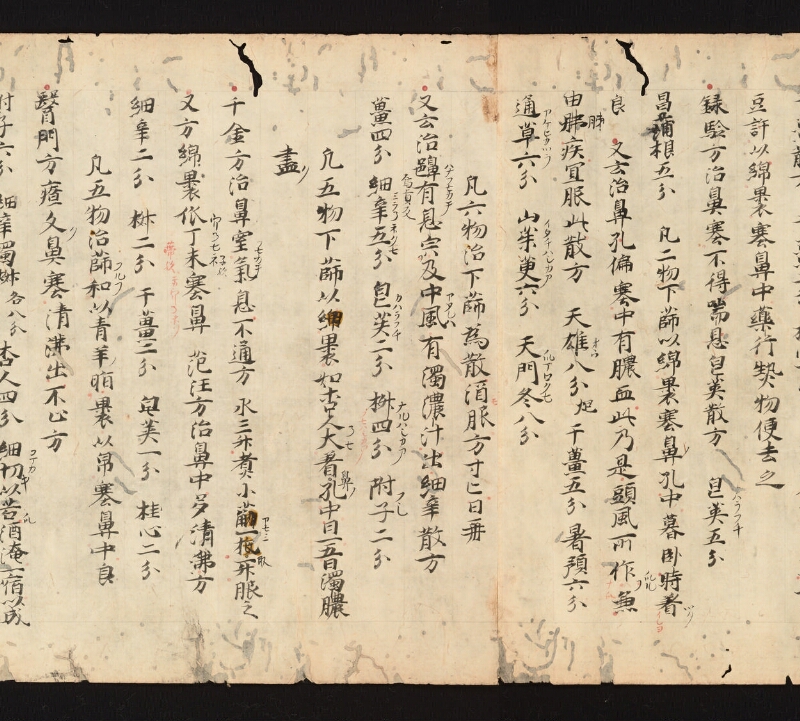 豆許以綿裹塞鼻中藥行熱物便去之
録驗方治鼻塞不得喘息皂莢散方 皂莢五分
昌蒲根五分 凡二物下篩以綿裹塞鼻孔中暮卧時着
良 又云治鼻孔偏塞中有膿血此乃是頭風所作兼
由肺疾宜服此散方 天雄八分炮 干薑五分 暑預六分
通草六分 山茱萸六分 天門冬八分
凡六物治下篩為散酒服方寸匕日再
又云治齆鼻有息宍及中風有濁濃汁出細辛散方
薑四分 細辛五分 皂莢二分 椒四分 附子二分
凡五物下篩以綿裹如杏人大着鼻孔中日一五日濁膿
盡
千金方治鼻窒氣息不通方 水三升煮小薊一把取一升服之
又方綿裹依丁末塞鼻 范汪方治鼻中多清涕方
細辛二分 椒二分 干薑二分 皂莢一分 桂心二分
凡五物治篩和以青羊脂裹以帛塞鼻中良
醫門方療久鼻塞清涕出不止方
付子六分 細辛蜀椒各八分 杏人四分 細切以苦酒淹一宿以成